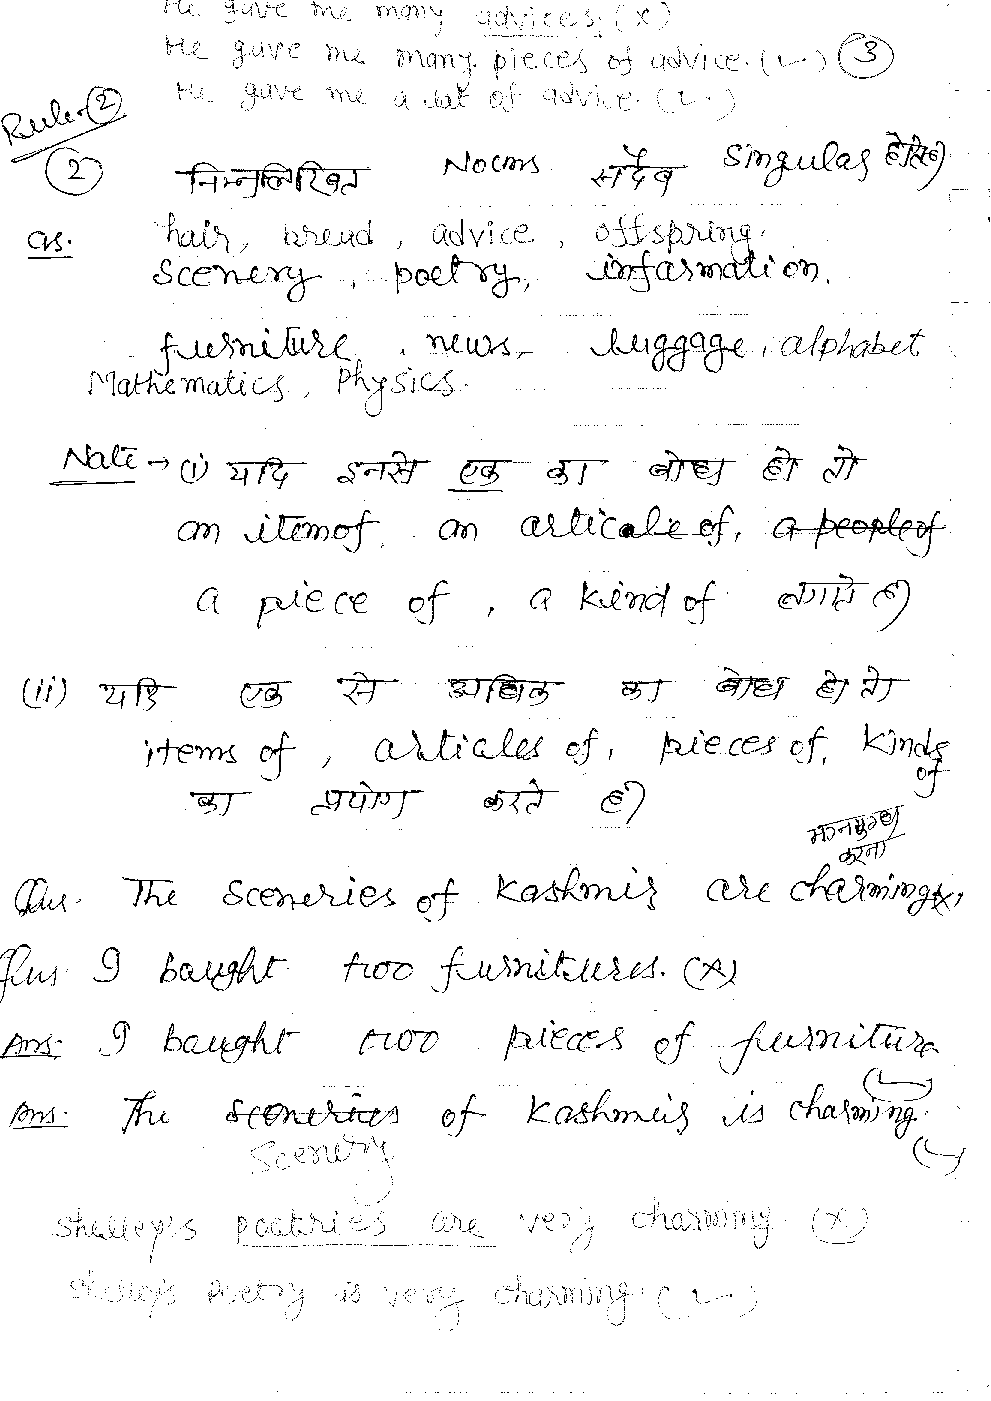 He gave me many advices. (×)
He gave me many pieces of advice. (✓) ③
He gave me a lot of advice. (✓)
Rule-②
② निम्नलिखित Nouns सदैव Singular होते हैं
as. hair, bread, advice, offspring.
Scenery, poetry, information.
furniture, news, luggage, alphabet
Mathematics, Physics.
Note → (i) यदि इनसे एक का बोध हो तो
an item of, an articale of, a people of
a piece of, a kind of लगाते हैं
(ii) यदि एक से अधिक का बोध हो तो
items of, articales of, pieces of, kinds of
का प्रयोग करते हैं
करना
Qus. The Sceneries of Kashmir are charming (×)
Qus. I baught two furnitures. (×)
Ans. I baught two pieces of furniture (✓)
Ans. The sceneries of Kashmir is charming. (✓)
Scenery
Shelley's poetries are very charming. (×)
Shelley's Poetry is very charming. (✓)